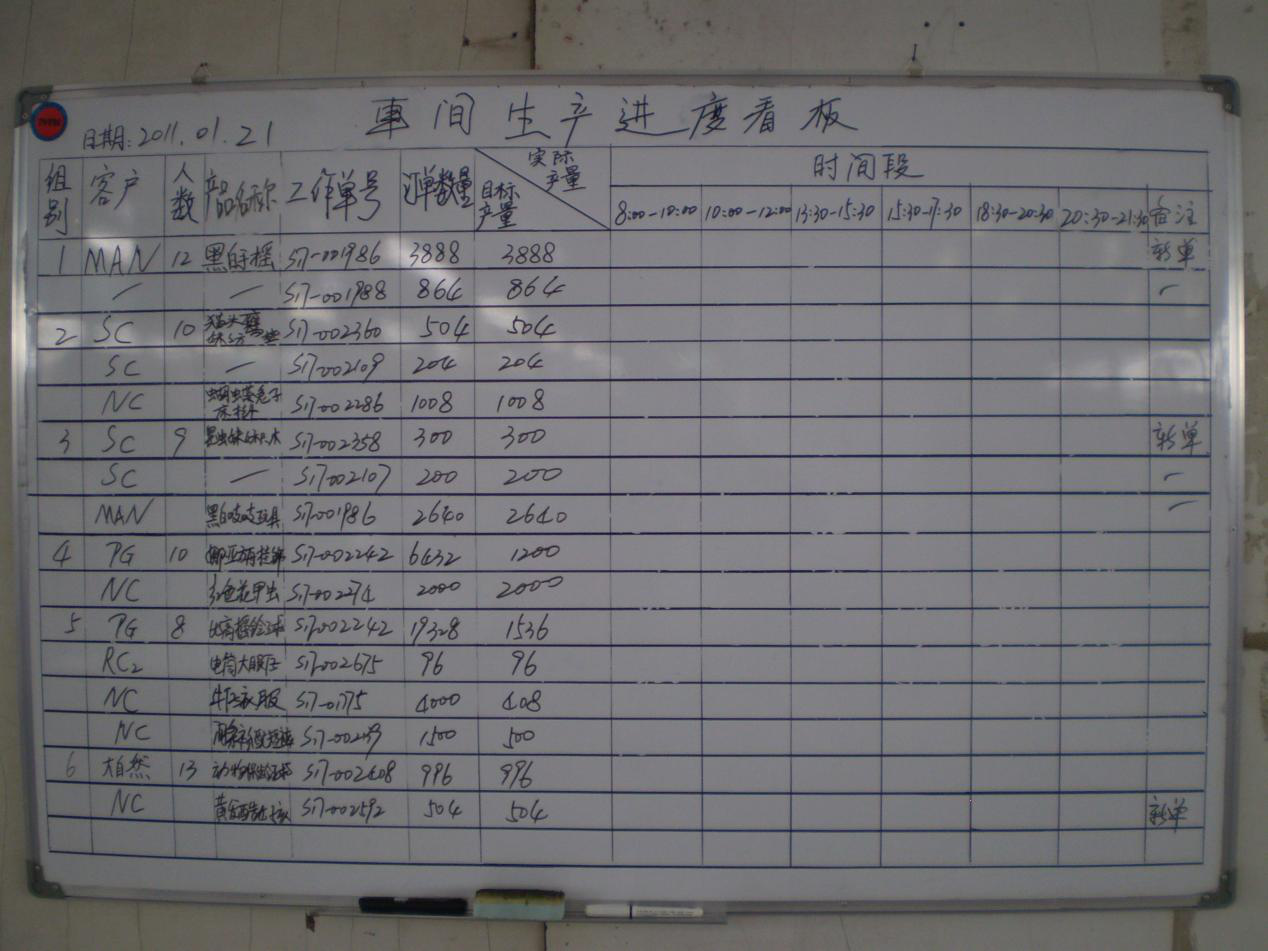 車间生产进度看板
日期:2011.01.21
组别 客户 人数 产品名称 工作单号 订单数量 实际产量 目标产量 时间段
8:00-10:00 10:00-12:00 13:30-15:30 15:30-17:30 18:30-20:30 20:30-21:30 备注
1 MAN 12 黑白手摇 S17-001986 3888 3888 新单
— — S17-001988 864 864 —
2 SC 10 猫头鹰 S17-002360 504 504
SC — S17-002109 204 204
NC 蝴蝶兔子床挂 S17-002286 1008 1008
3 SC 9 S17-002358 300 300 新单
SC — S17-002107 200 200 —
MAN 黑白吱吱玩具 S17-001986 2640 2640 —
4 PG 10 S17-002242 6432 1200
NC 红色花甲虫 S17-002274 2000 2000
5 PG 8 S17-002242 19328 1536
RC2 S17-002675 96 96
NC 牛仔衣服 S17-01775 4000 408
NC 1500 500
6 大自然 13 动物保龄球 S17-002408 996 996
NC S17-002592 504 504 新单